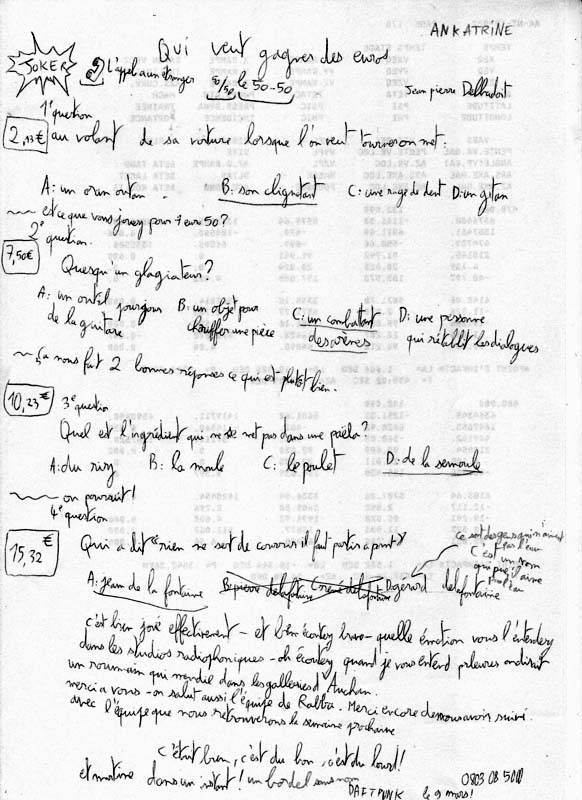 ANKATRINE
Qui veut gagner des euros
JOKER L'appel a un étranger 50/50 le 50-50
Jean pierre Delbadoit
1° question
2,13€ au volant de sa voiture lorsque l'on veut tourner on met:
A: un oran outan B: son clignotant C: une rage de dent D: un gitan
et ce que vous jouez pour 7 euro 50?
2° question.
7,50€
Quesqu'un glagiateur?
A: un outil pour jouer de la guitare B: un objet pour chauffer une pièce C: un combattant des arènes D: une personne qui rétablit les dialogues
ça nous fait 2 bonnes réponses ce qui est plutot bien.
10,23€ 3° question
Quel est l'ingrédient qui ne se met pas dans une paëla?
A: du rizz B: la moule C: le poulet D: de la semoule
on poursuit!
4° question
15,32€
Qui a dit "rien ne sert de courrir il faut partir a point"
Ce sont des gens qui m'écrivent par l'eau
C'est un nom
A: jean de la fontaine D: gérard de la fontaine
c'est bien joué effectivement - et bien écoutez bravo - quelle émotion vous l'entendez
dans les studios radiophoniques - oh écoutez quand je vous entend pleurer on dirait
un roumain qui mendie dans les galleries d'Auchan.
merci a vous - on salut aussi l'équipe de Rabba. Merci encore de nous avoir suivi.
avec l'équipe que nous retrouverons la semaine prochaine
c'était bien, c'est du bon, c'est du lourd!
et matine dans un instant! un bordel sans nom
DAFT PUNK le 9 mars!
0803 08 5000